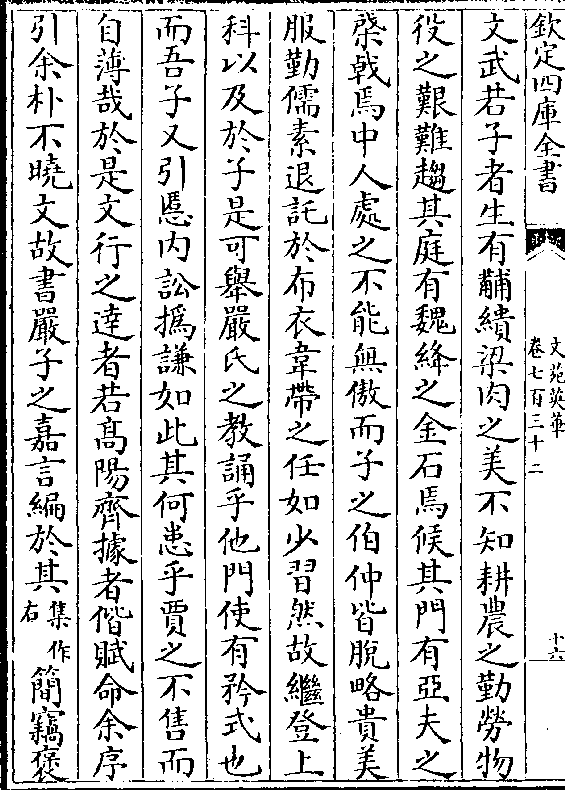 欽定四庫全書
文苑英華
卷七百三十二
十六
文武若子者生有黼繢梁肉之美不知耕農之勤勞物
役之艱難趨其庭有魏絳之金石焉候其門有亞夫之
棨戟焉中人處之不能無傲而子之伯仲皆脫略貴美
服勤儒素退託於布衣韋帶之任如少習然故繼登上
科以及於子是可舉嚴氏之教誦乎他門使有矜式也
而吾子又引慝内訟撝謙如此其何患乎賈之不售而
自薄哉於是文行之達者若髙陽齊據者偕賦命余序
引余朴不曉文故書嚴子之嘉言編於其集作右簡竊褒